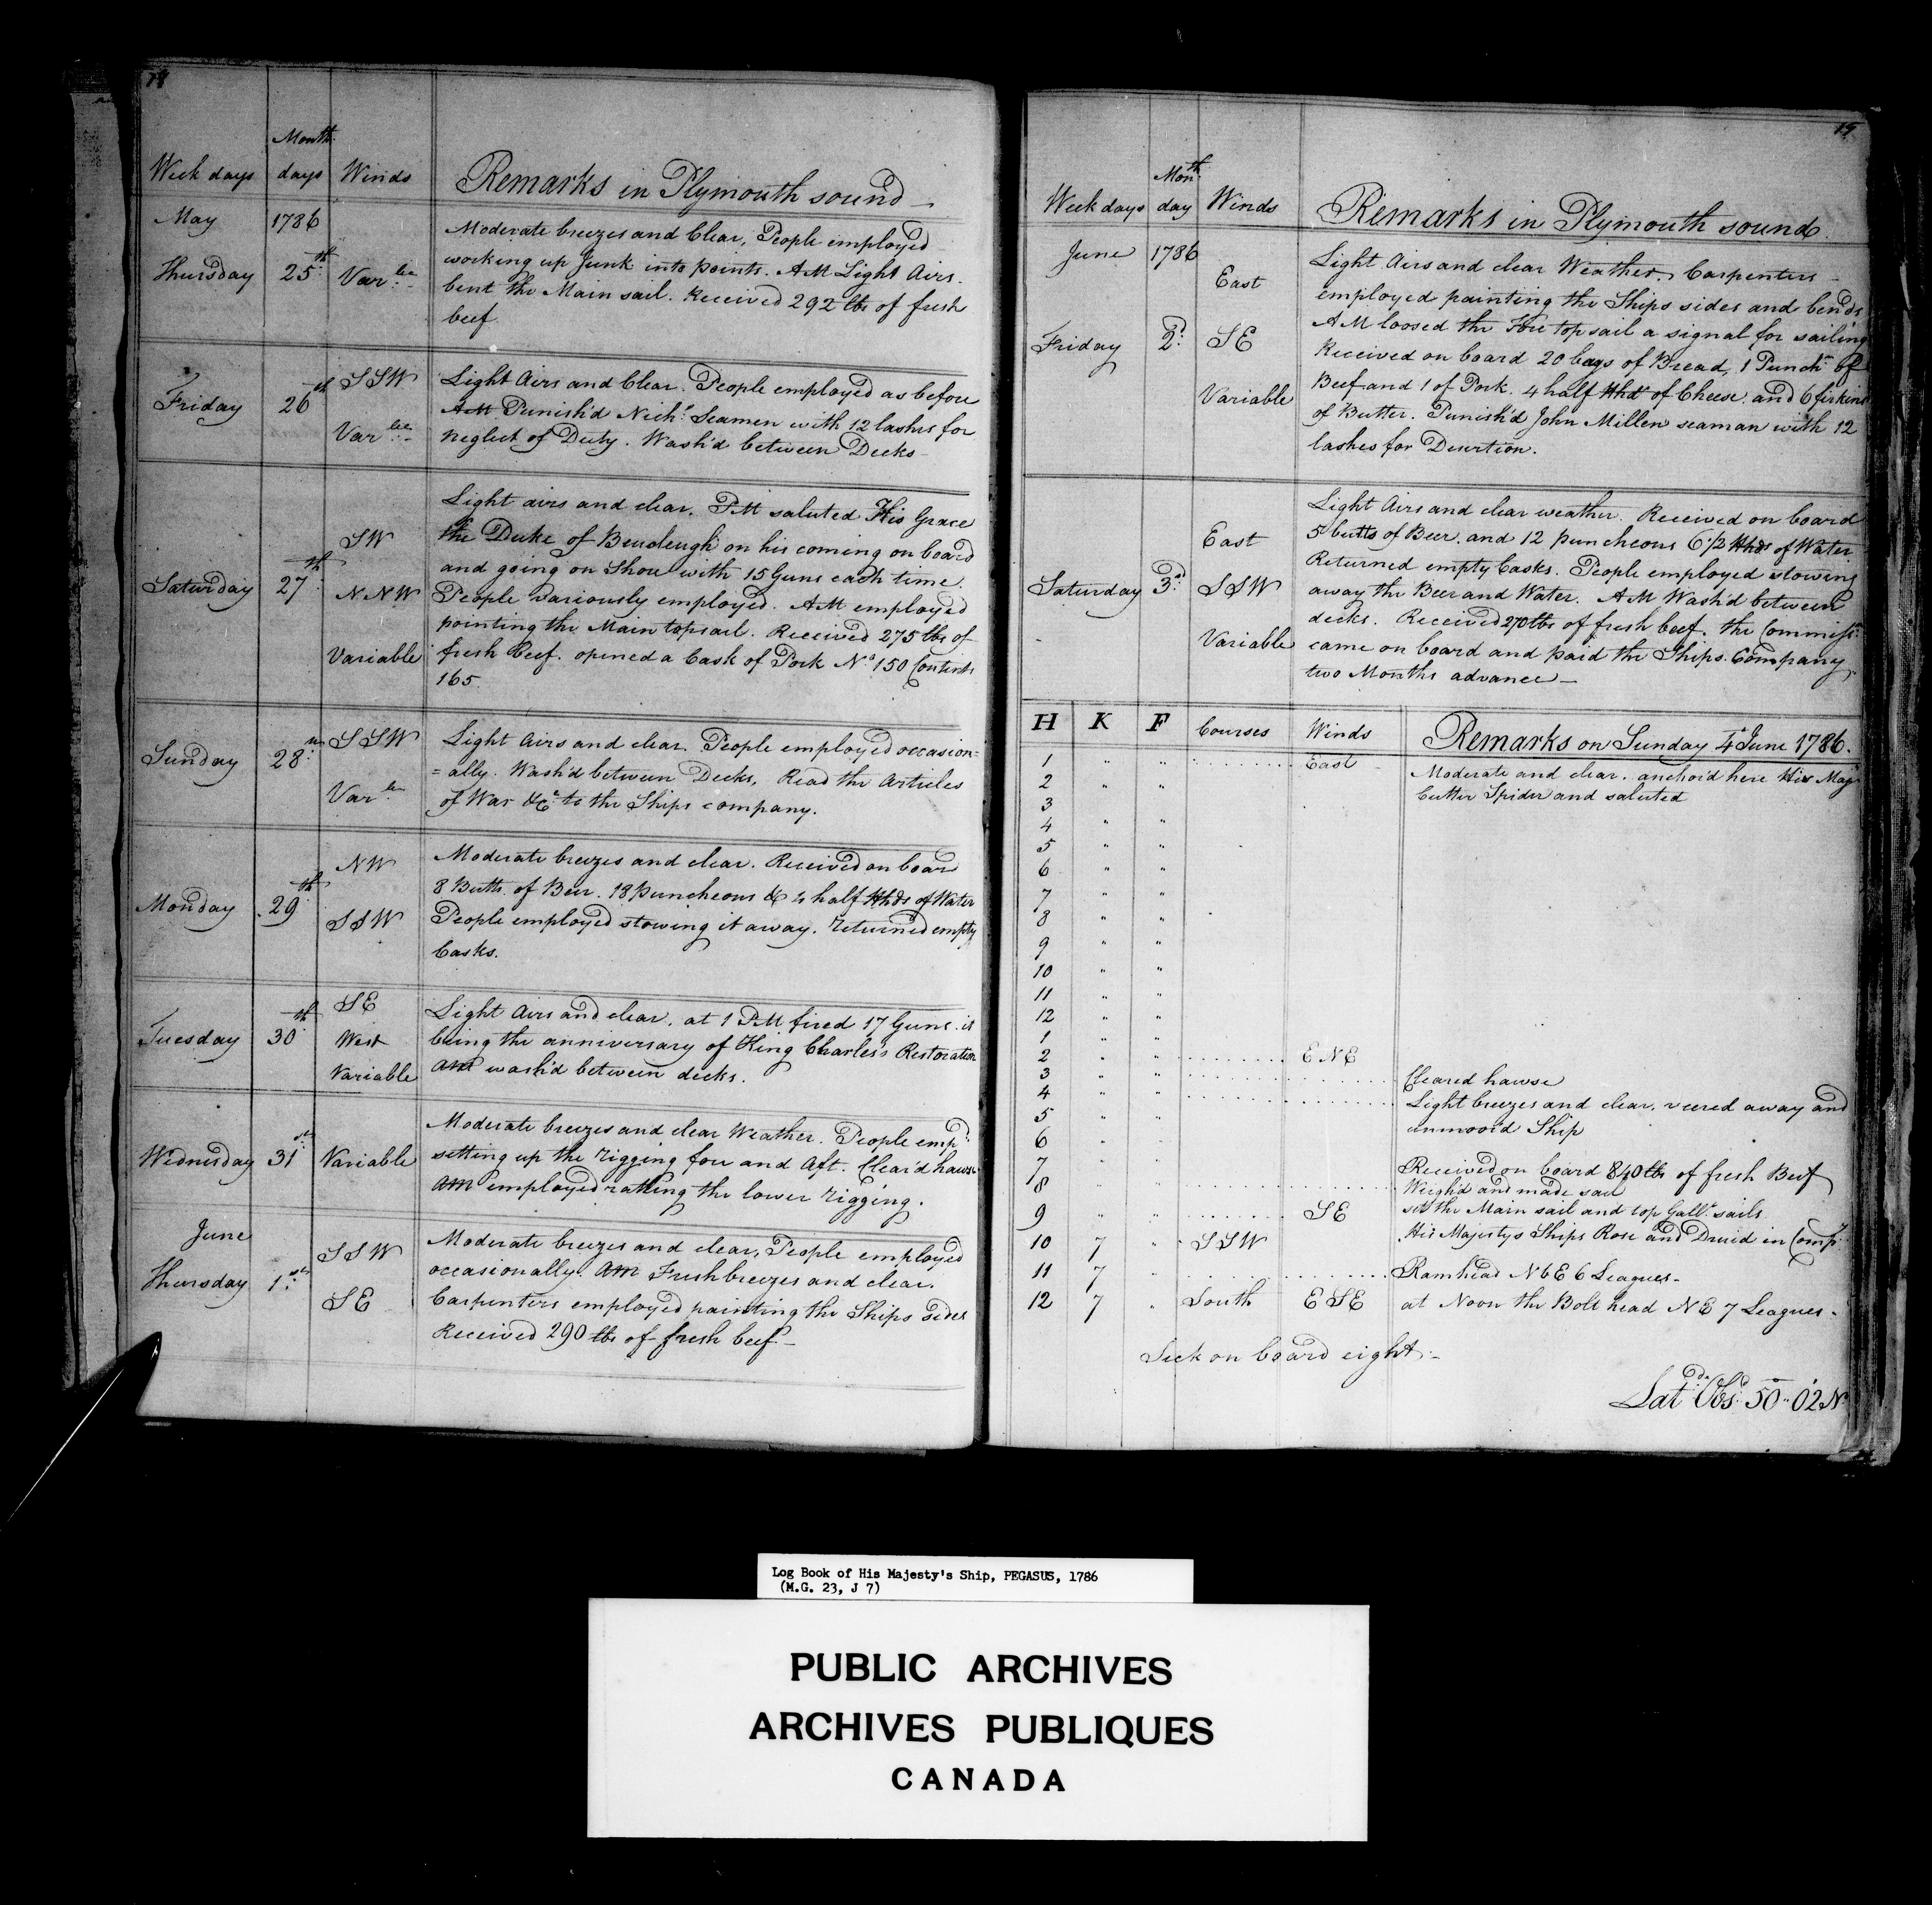 18
Week days Month days Winds Remarks in Plymouth sound
May 1786
Moderate breezes and Clear, People employed
Thursday 25th Var.ble working up Junk into points. AM Light Airs.
bent the Main sail. Received 292 lbs of fresh
beef
Friday 26th SSW Light Airs and Clear. People employed as before
AM Punish'd Nichs. Seamen with 12 lashes for
Var.ble neglect of Duty. Wash'd between Decks
Light airs and clear. PM saluted His Grace
SW the Duke of on his coming on board
and going on Shore with 15 Guns each time
Saturday 27th NNW People variously employed. AM employed
pointing the Main topsail. Received 275 lbs of
Variable fresh beef. opened a Cask of Pork No 150 Contents
165
Sunday 28th SSW Light Airs and clear. People employed occasion=
=ally. Wash'd between Decks, Read the Articles
Var.ble of War &c.a to the Ships company.
NW Moderate breezes and clear. Received on board
8 Butts of Beer. 18 puncheons & 4 half Hhds of Water
Monday 29th SSW People employed stowing it away. returned empty
Casks.
SE Light Airs and clear, at 1 PM fired 17 Guns. it
Tuesday 30th West being the anniversary of King Charles's Restoration
Variable AM wash'd between decks.
Moderate breezes and clear Weather. People emp.d
Wednesday 31st Variable setting up the rigging fore and Aft. Clear'd hawse
AM employed ratling the lower rigging.
June
SSW Moderate breezes and clear, People employed
Thursday 1st occasionally. AM Fresh breezes and clear.
SE Carpenters employed painting the Ships sides
Received 290 lbs of fresh beef
19
Week days Month day Winds Remarks in Plymouth sound.
June 1786
East Light Airs and clear Weather. Carpenters
employed painting the Ships sides and bends
AM loosed the Fore top sail a signal for sailing
Friday 2d SE Received on board 20 bags of Bread, 1 Punchn of
Variable Beef and 1 of Pork. 4 half Hhds of Cheese. and 6 firkins
of Butter. Punish'd John Millen seaman with 12
lashes for Desertion.
Light Airs and clear weather. Received on board
East 5 butts of Beer. and 12 puncheons 6 1/2 Hhds of Water
Returned empty Casks. People employed stowing
Saturday 3d SSW away the Beer and Water. AM Wash'd between
decks. Received 270 lbs of fresh beef. the Commissr
Variable came on board and paid the Ships Company
two Months advance
H K F Courses Winds Remarks on Sunday 4th June 1786.
1 " " East Moderate and clear. anchor'd here His Maj.
2 " " Cutter Spider and saluted
3
4 " "
5 " "
6 " "
7 " "
8 " "
9 " "
10 " "
11 " "
12 " "
1 " "
2 " " ENE
3 " " Cleared hawse
4 " " Light breezes and clear. veered away and
5 " " unmoor'd Ship
6 " "
7 " " Received on board 840 lbs of fresh Beef
8 " " Weigh'd and made sail
9 " " SE set the Main sail and top Gallt sails
10 7 " SSW His Majestys Ships Rose and Druid in Comp.y
11 7 " Ramhead NbE 6 Leagues
12 7 " South ESE at Noon the Bolt head NE 7 Leagues
Sick on board eight
Lat.d Obs.d 50° 02 N
Log Book of His Majesty's Ship, PEGASUS, 1786
(M.G. 23, J 7)
PUBLIC ARCHIVES
ARCHIVES PUBLIQUES
CANADA